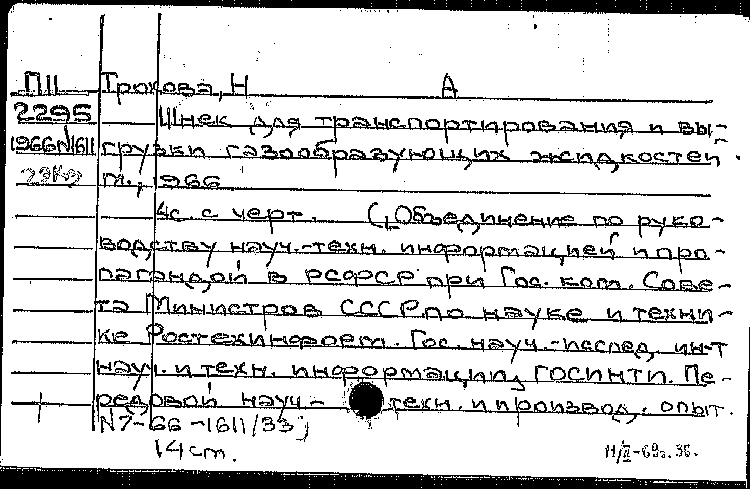 ПII Трохова, Н А
2295 Шнек для транспортирования и вы-
1966N1611 грузки газообразующих жидкостей.
М., 1966
4с. с черт. („Объединение по руко-
водству науч.-техн. информацией и про-
пагандой в РСФСР при Гос. ком. Сове-
та Министров СССР по науке и техни-
ке Ростехинформ. Гос. науч.-исслед. ин-т
науч. и техн. информации, ГОСИНТИ. Пе-
редовой науч- техн. и производ. опыт.
N7-66-1611/33)
14 cm. II-69г. 36.